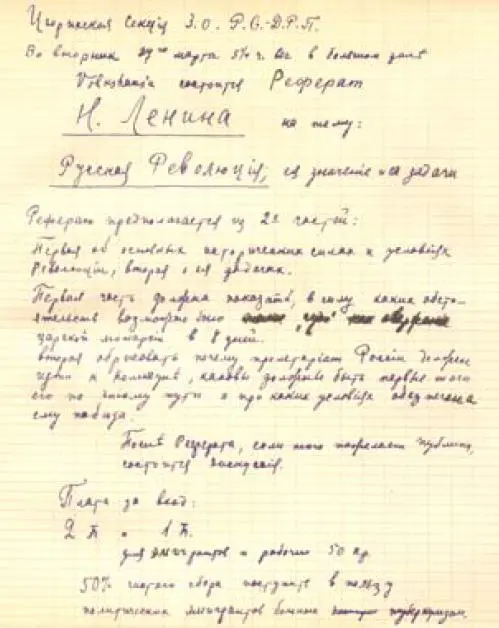 Цюрихская Секція З.О. Р.С.-Д.Р.П.
Во вторник марта 5½ ч. в большом зале
Volkshaus'а состоится Реферат
Н. Ленина на тему:
Русская Революція, ея значеніе и ея задачи
Реферат предполагается из 2х частей:
Первая об основных исторических силах и условіях
Революціи, вторая о ея задачах.
Первая часть должна показать, в силу каких обсто-
ятельств возможно было
царской монархіи в 8 дней.
вторая обрисовать почему пролетаріат Россіи должен
идти к , каковы должны быть первые шаги
его по этому пути и при каких условіях обезпечена
ему победа.
После Реферата, если того пожелает публика,
состоится дискуссія.
Плата за вход:
2 1
для эмигрантов и рабочих 50
50% чистаго сбора поступит в пользу
политических эмигрантов больных туберкулезом.